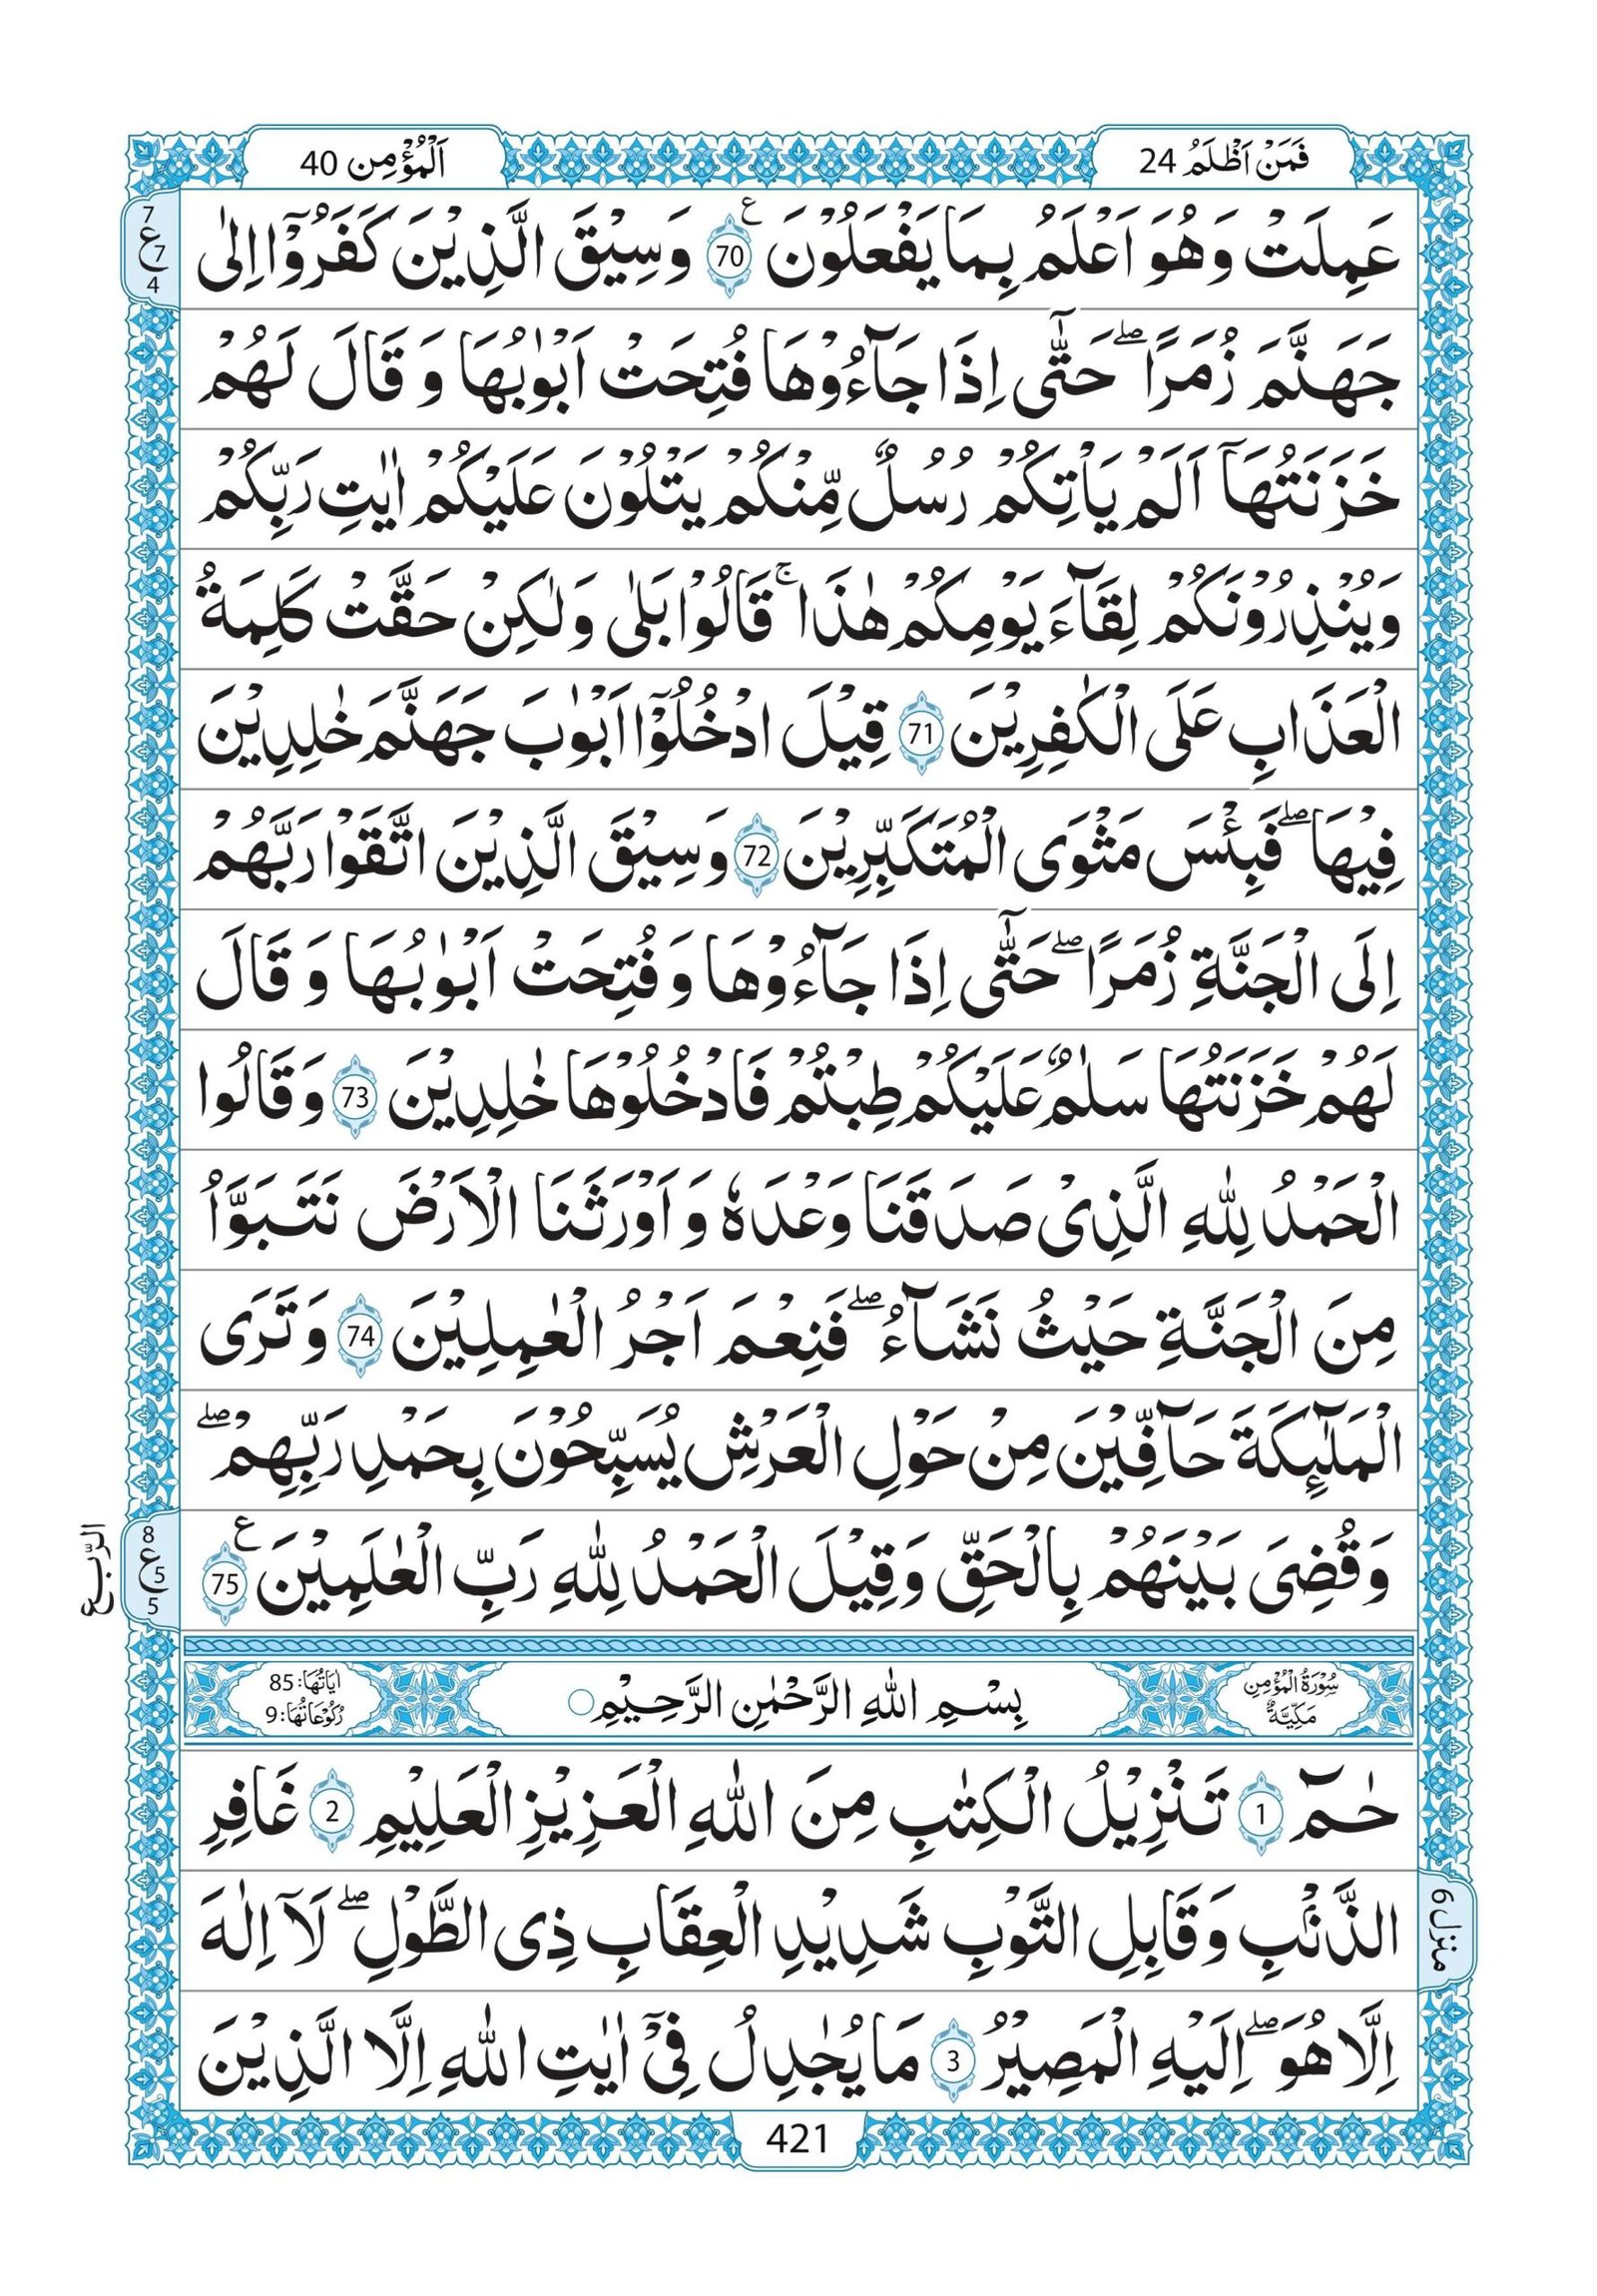 فَمَنْ اَظْلَمُ 24
اَلْمُؤْمِن 40
عَمِلَتْ وَهُوَ اَعْلَمُ بِمَا يَفْعَلُوْنَ ۧ 70 وَسِيْقَ الَّذِيْنَ كَفَرُوْٓا اِلٰى
7
ع 7
4
جَهَنَّمَ زُمَرًا ۖ حَتّٰٓى اِذَا جَآءُوْهَا فُتِحَتْ اَبْوٰبُهَا وَ قَالَ لَهُمْ
خَزَنَتُهَآ اَلَمْ يَاْتِكُمْ رُسُلٌ مِّنْكُمْ يَتْلُوْنَ عَلَيْكُمْ اٰيٰتِ رَبِّكُمْ
وَيُنْذِرُوْنَكُمْ لِقَآءَ يَوْمِكُمْ هٰذَا ۚ قَالُوْا بَلٰى وَلٰكِنْ حَقَّتْ كَلِمَةُ
الْعَذَابِ عَلَى الْكٰفِرِيْنَ 71 قِيْلَ ادْخُلُوْٓا اَبْوٰبَ جَهَنَّمَ خٰلِدِيْنَ
فِيْهَا ۖ فَبِئْسَ مَثْوَى الْمُتَكَبِّرِيْنَ 72 وَسِيْقَ الَّذِيْنَ اتَّقَوْا رَبَّهُمْ
اِلَى الْجَنَّةِ زُمَرًا ۖ حَتّٰٓى اِذَا جَآءُوْهَا وَفُتِحَتْ اَبْوٰبُهَا وَ قَالَ
لَهُمْ خَزَنَتُهَا سَلٰمٌ عَلَيْكُمْ طِبْتُمْ فَادْخُلُوْهَا خٰلِدِيْنَ 73 وَقَالُوا
الْحَمْدُ لِلّٰهِ الَّذِىْ صَدَقَنَا وَعْدَهٗ وَ اَوْرَثَنَا الْاَرْضَ نَتَبَوَّاُ
مِنَ الْجَنَّةِ حَيْثُ نَشَآءُ ۖ فَنِعْمَ اَجْرُ الْعٰمِلِيْنَ 74 وَتَرَى
الْمَلٰٓئِكَةَ حَآفِّيْنَ مِنْ حَوْلِ الْعَرْشِ يُسَبِّحُوْنَ بِحَمْدِ رَبِّهِمْ ۖ
وَقُضِىَ بَيْنَهُمْ بِالْحَقِّ وَقِيْلَ الْحَمْدُ لِلّٰهِ رَبِّ الْعٰلَمِيْنَ ۧ 75
8
ع 5
5
الرّبع
سُوْرَةُ الْمُؤْمِنِ
مَكِّيَّةٌ
بِسْمِ اللّٰهِ الرَّحْمٰنِ الرَّحِيْمِ ○
اٰيَاتُهَا: 85
رُكُوْعَاتُهَا: 9
حٰمٓ 1 تَنْزِيْلُ الْكِتٰبِ مِنَ اللّٰهِ الْعَزِيْزِ الْعَلِيْمِ 2 غَافِرِ
الذَّنْۢبِ وَقَابِلِ التَّوْبِ شَدِيْدِ الْعِقَابِ ذِى الطَّوْلِ ۖ لَآ اِلٰهَ
منزل 6
اِلَّا هُوَ ۖ اِلَيْهِ الْمَصِيْرُ 3 مَا يُجٰدِلُ فِىْٓ اٰيٰتِ اللّٰهِ اِلَّا الَّذِيْنَ
421